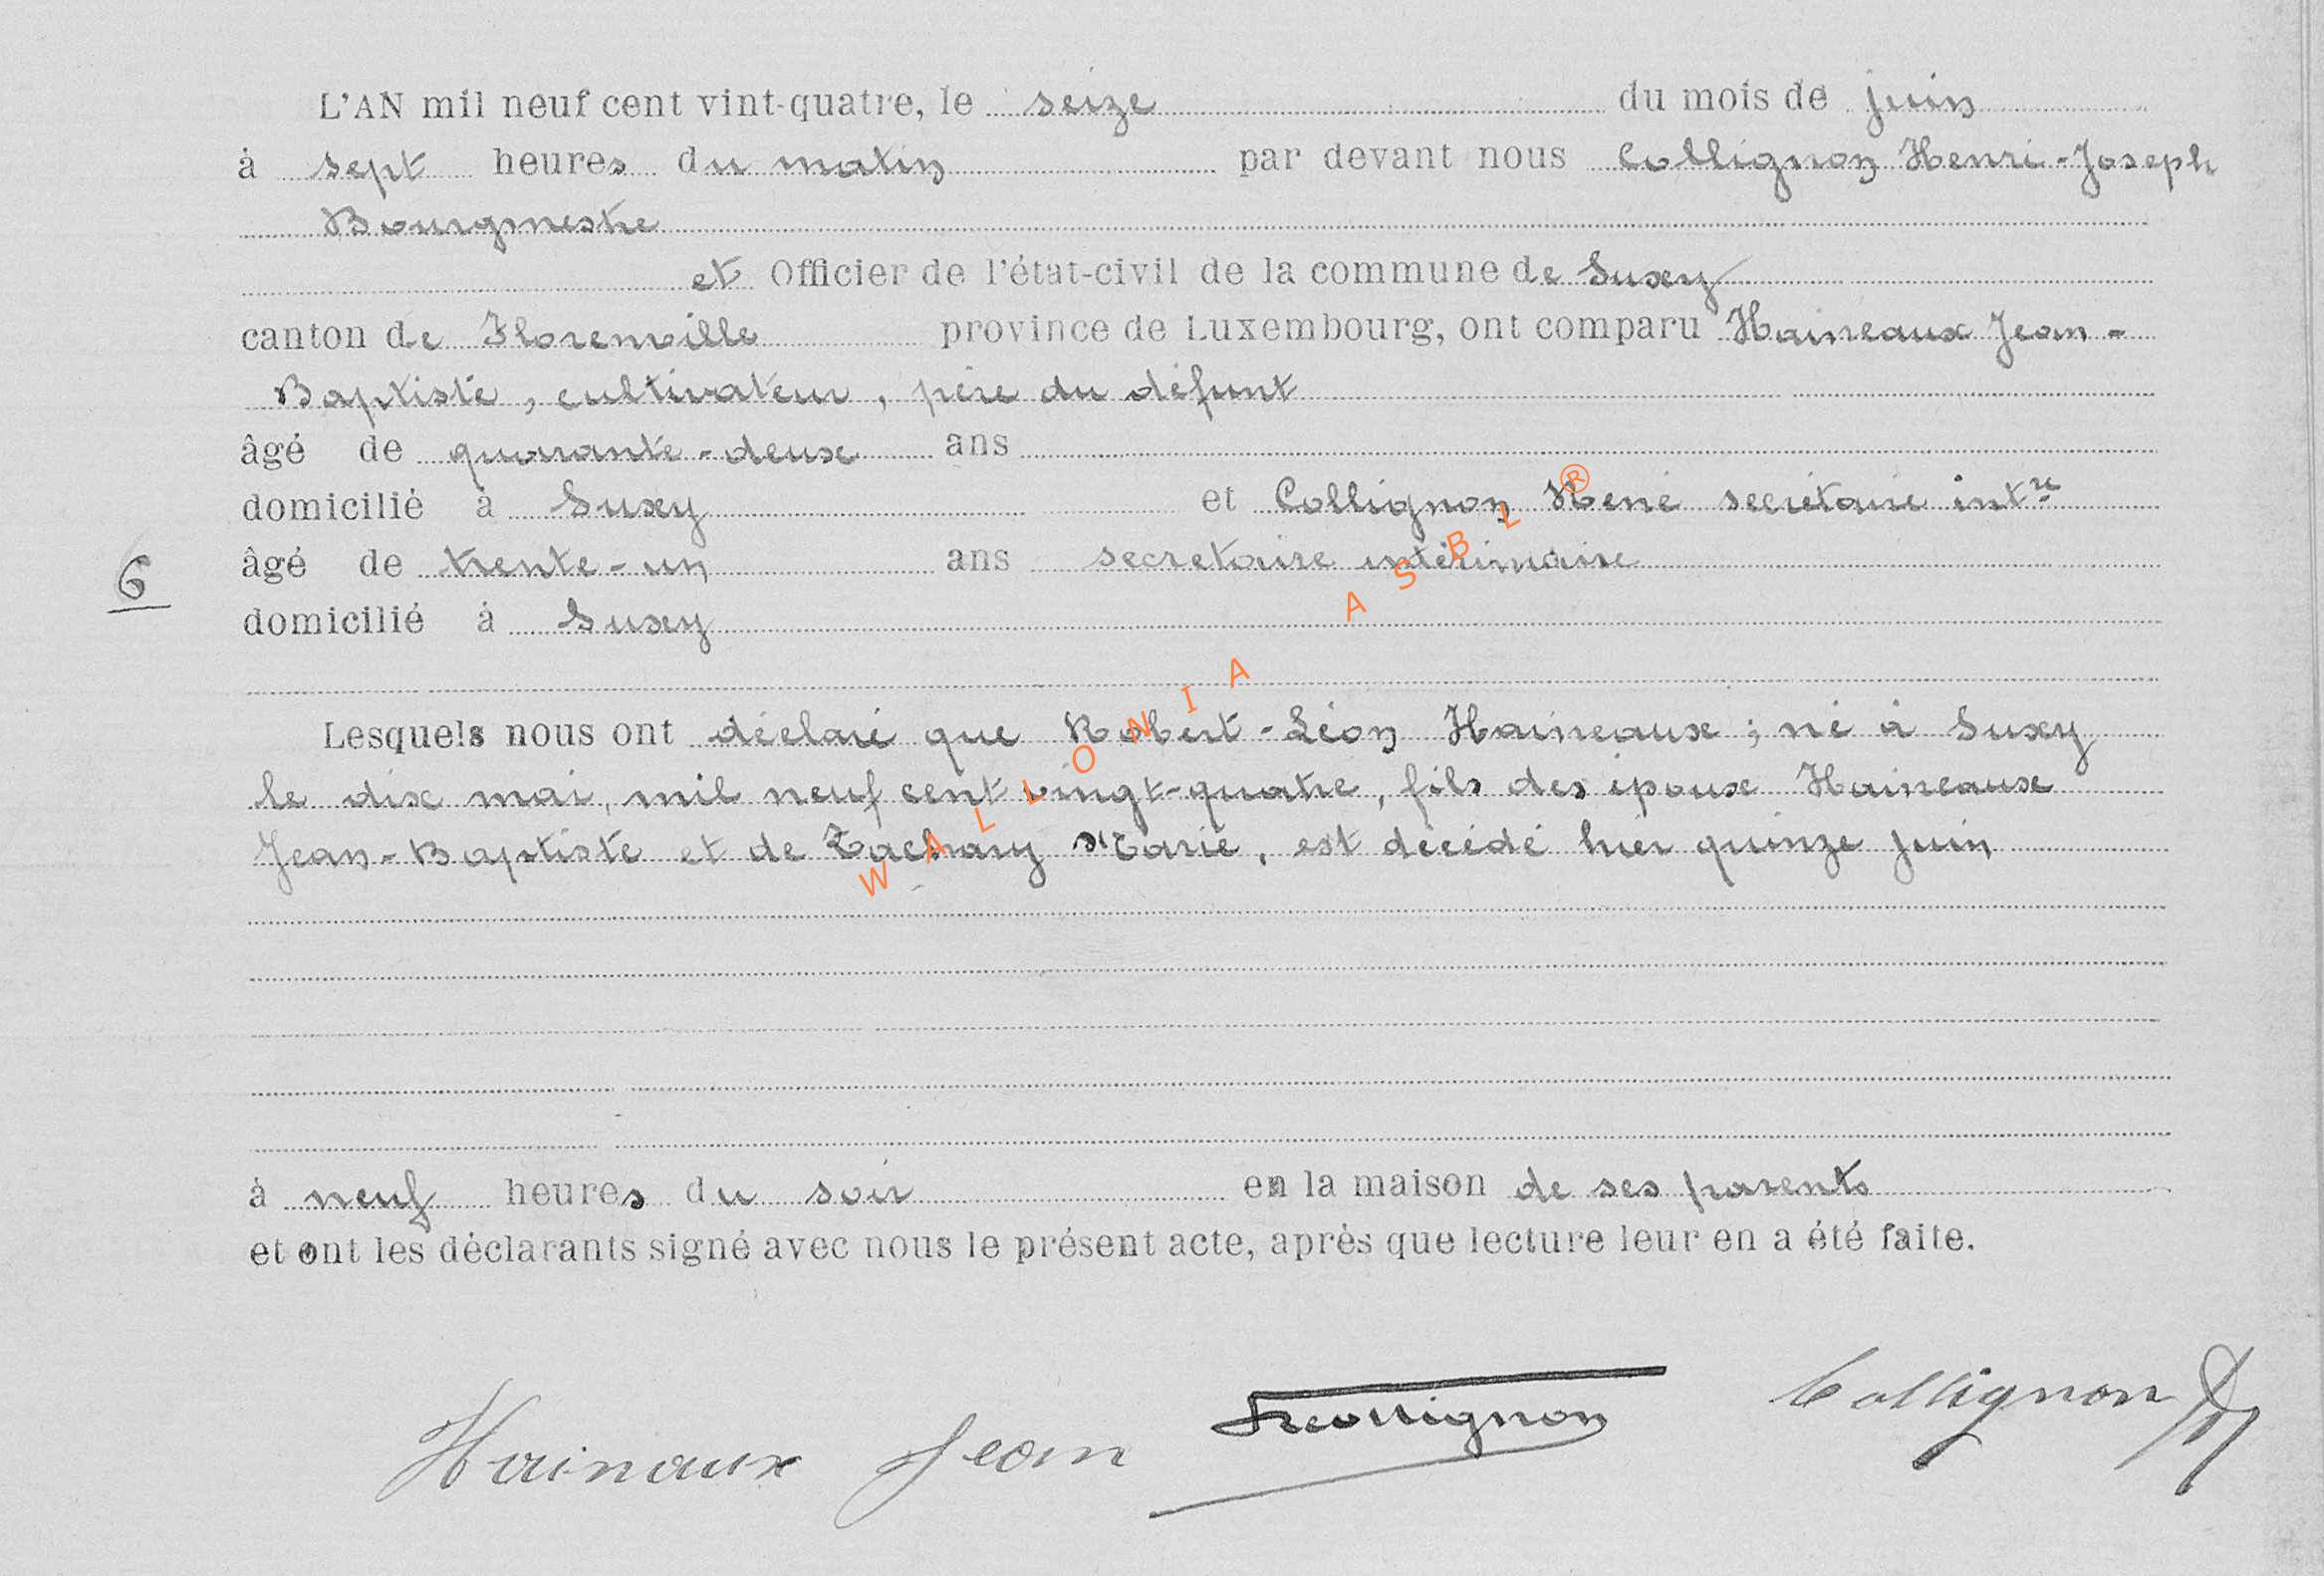 L'AN mil neuf cent vint-quatre, le seize du mois de juin
à sept heures du matin par devant nous Collignon Henri-Joseph
Bourgmestre
et Officier de l'état-civil de la commune de Suxy
canton de Florenville province de Luxembourg, ont comparu Haineaux Jean-
Baptiste, cultivateur, père du défunt
âgé de quarante-deux ans
domicilié à Suxy et Collignon René secrétaire intre
6 âgé de trente-un ans secretaire intérimaire
domicilié à Suxy
Lesquels nous ont déclaré que Robert-Léon Haineaux; né à Suxy
le dix mai, mil neuf cent vingt-quatre, fils des époux Haineaux
Jean-Baptiste et de Zachary Marie, est décédé hier quinze juin
à neuf heures du soir en la maison de ses parents
et ont les déclarants signé avec nous le présent acte, après que lecture leur en a été faite.
Hainaux Jean Recollignon Collignon
WALLONIA ASBL ®